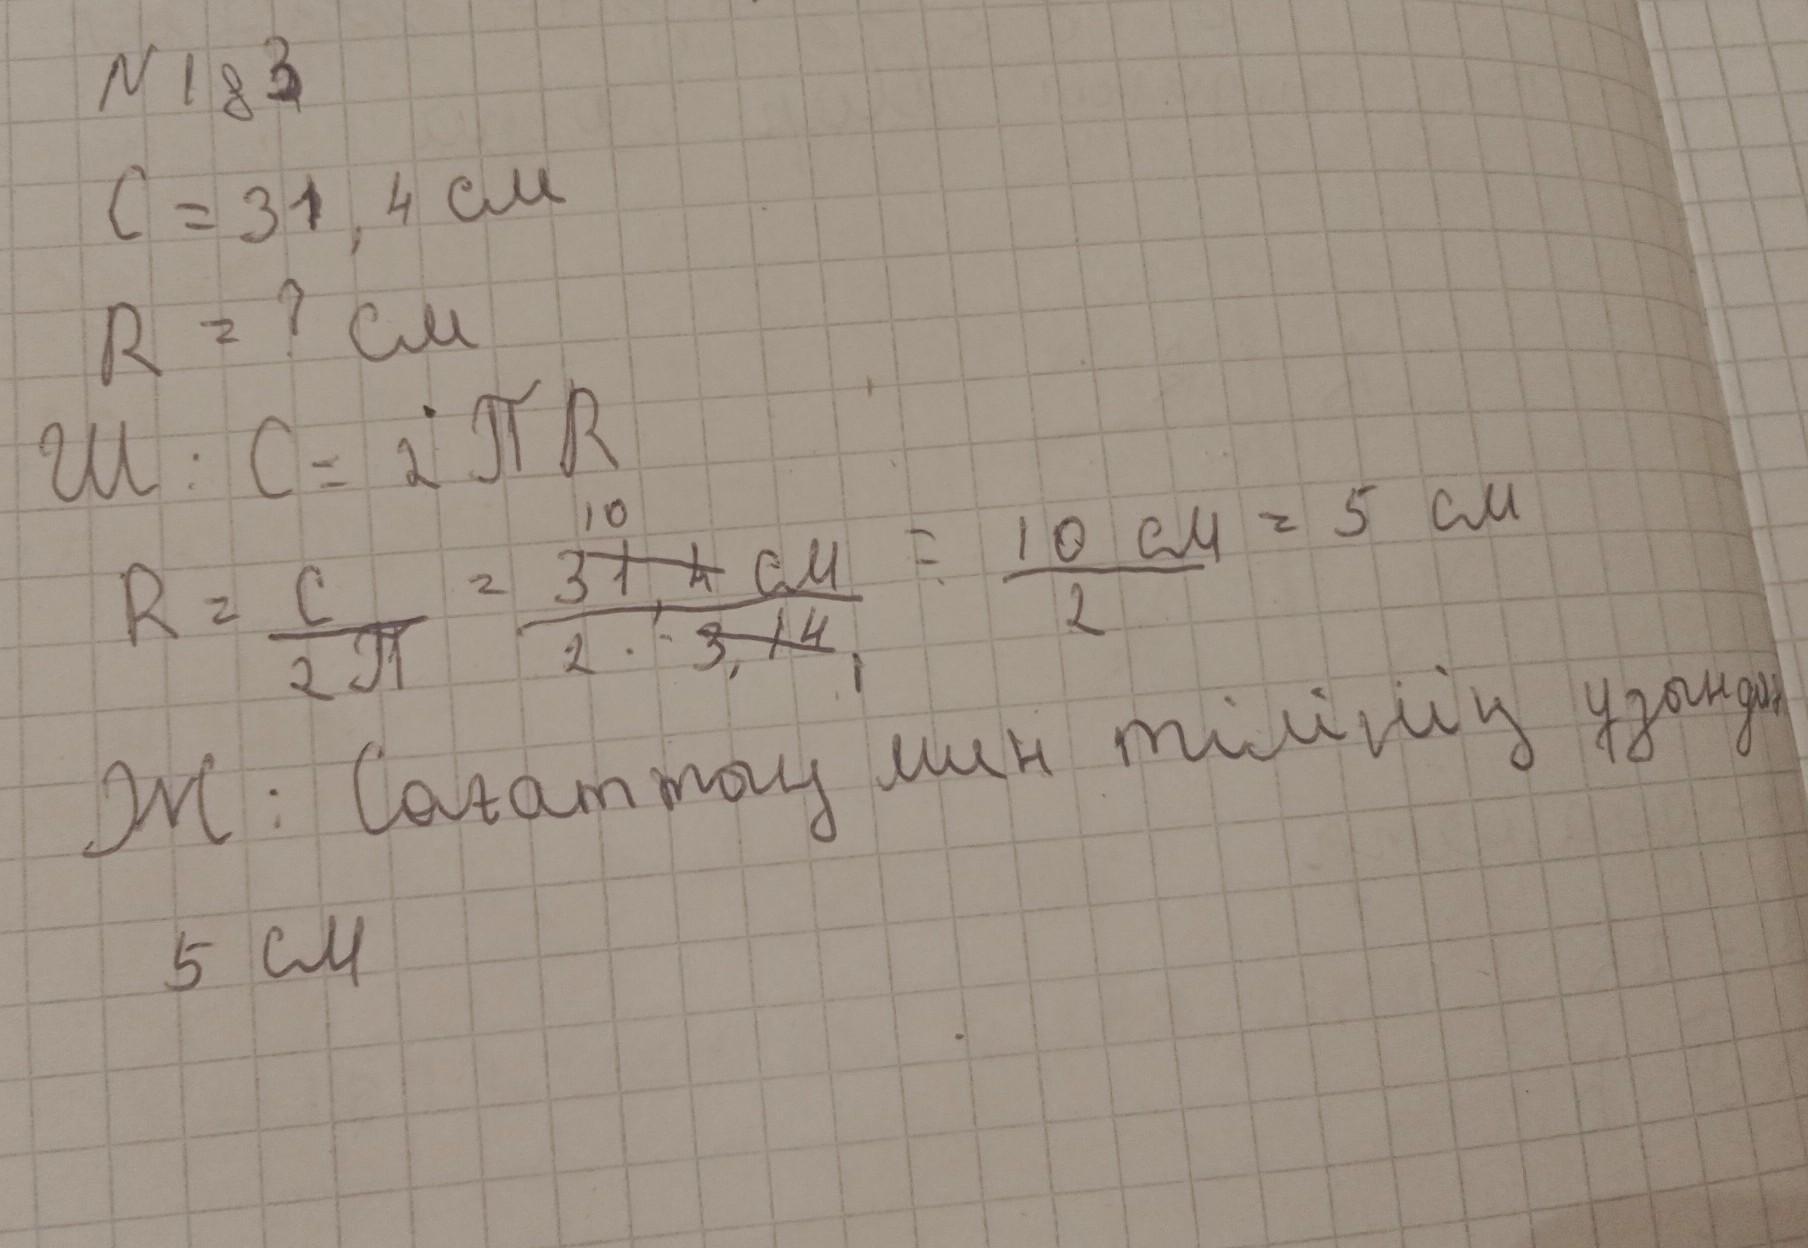 N 183
C = 31,4 см
R = ? см
Ш: C = 2 π R
R = C/2π = 31,4 см/2 · 3,14 = 10 см/2 = 5 см
10
1
Ж: Сағаттың мин тілінің ұзынды
5 см